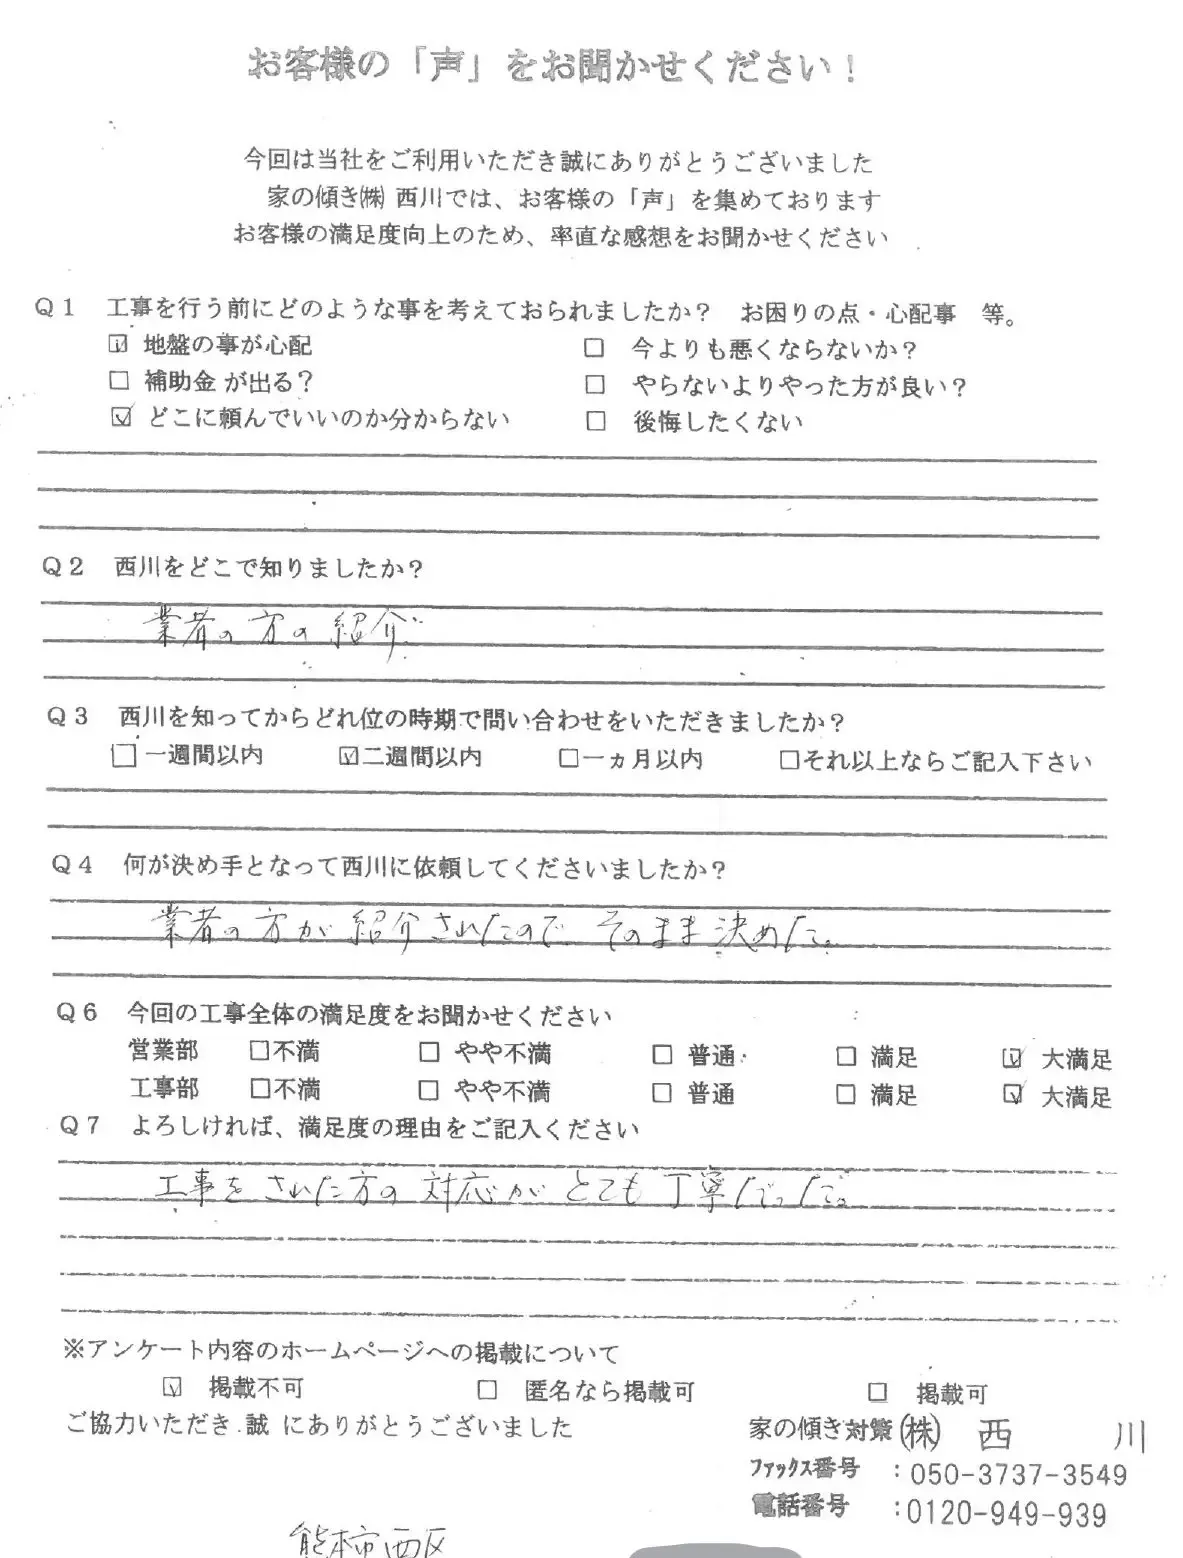 お客様の「声」をお聞かせください！
今回は当社をご利用いただき誠にありがとうございました
家の傾き㈱ 西川では、お客様の「声」を集めております
お客様の満足度向上のため、率直な感想をお聞かせください
Q1 工事を行う前にどのような事を考えておられましたか？ お困りの点・心配事 等。
☑ 地盤の事が心配 □ 今よりも悪くならないか？
□ 補助金 が出る？ □ やらないよりやった方が良い？
☑ どこに頼んでいいのか分からない □ 後悔したくない
Q2 西川をどこで知りましたか？
業者の方の紹介
Q3 西川を知ってからどれ位の時期で問い合わせをいただきましたか？
□一週間以内 ☑二週間以内 □一ヵ月以内 □それ以上ならご記入下さい
Q4 何が決め手となって西川に依頼してくださいましたか？
業者の方が紹介されたのでそのまま決めた。
Q6 今回の工事全体の満足度をお聞かせください
営業部 □不満 □ やや不満 □ 普通 □ 満足 ☑ 大満足
工事部 □不満 □ やや不満 □ 普通 □ 満足 ☑ 大満足
Q7 よろしければ、満足度の理由をご記入ください
工事をされた方の対応がとても丁寧だった。
※アンケート内容のホームページへの掲載について
☑ 掲載不可 □ 匿名なら掲載可 □ 掲載可
ご協力いただき 誠 にありがとうございました
家の傾き対策㈱ 西 川
ファックス番号 ：050-3737-3549
電話番号 ：0120-949-939
熊本市西区